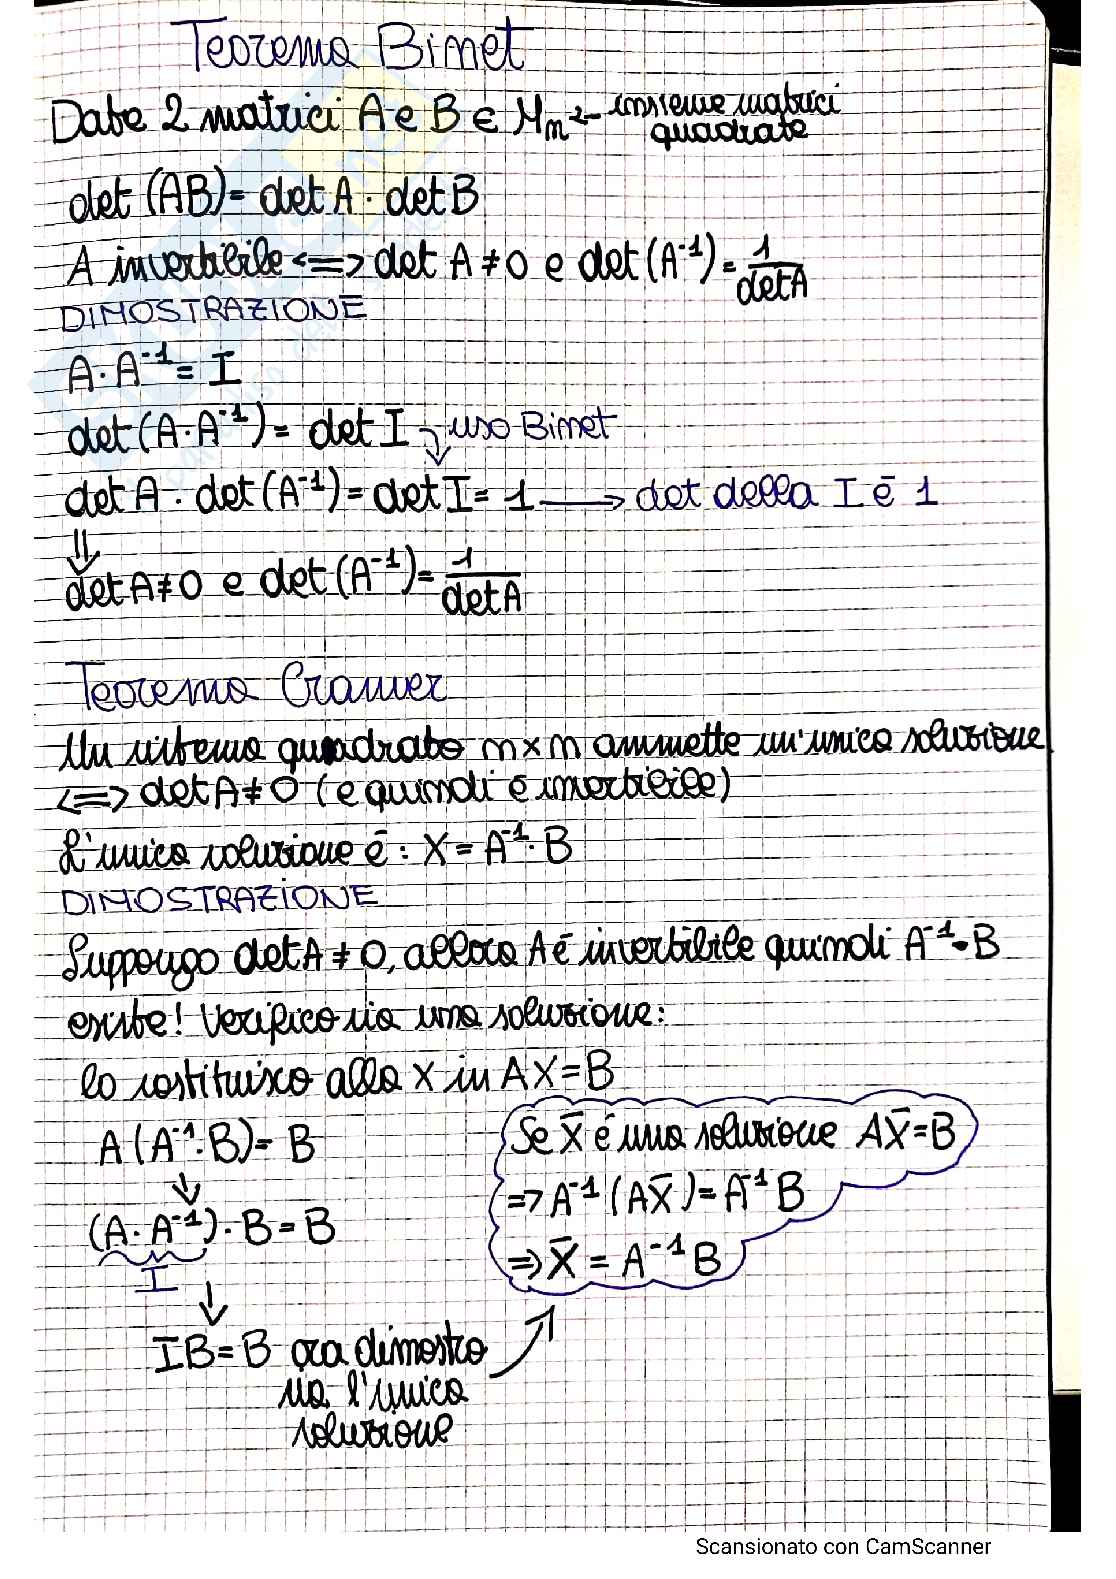 Teorema Bimet
Date 2 matrici A e B ∈ Mn² - insieme matrici
quadrate
det (AB) = det A · det B
A invertibile <=> det A ≠ 0 e det (A⁻¹) = 1/detA
DIMOSTRAZIONE
A · A⁻¹ = I
det (A · A⁻¹) = det I → uso Bimet
det A · det (A⁻¹) = det I = 1 → det della I è 1
⇓
det A ≠ 0 e det (A⁻¹) = 1/detA
Teorema Cramer
Un sistema quadrato n x n ammette un'unica soluzione
<=> det A ≠ 0 (e quindi è invertibile)
L'unica soluzione è : X = A⁻¹ · B
DIMOSTRAZIONE
Suppongo det A ≠ 0, allora A è invertibile quindi A⁻¹ · B
esiste! Verifico sia una soluzione:
lo sostituisco alla X in AX = B
A (A⁻¹ · B) = B
↓
(A · A⁻¹) · B = B
I
↓
IB = B ora dimostro
sia l'unica
soluzione
Se X̄ è una soluzione AX̄ = B
=> A⁻¹ (AX̄) = A⁻¹ B
=> X̄ = A⁻¹ B
Scansionato con CamScanner